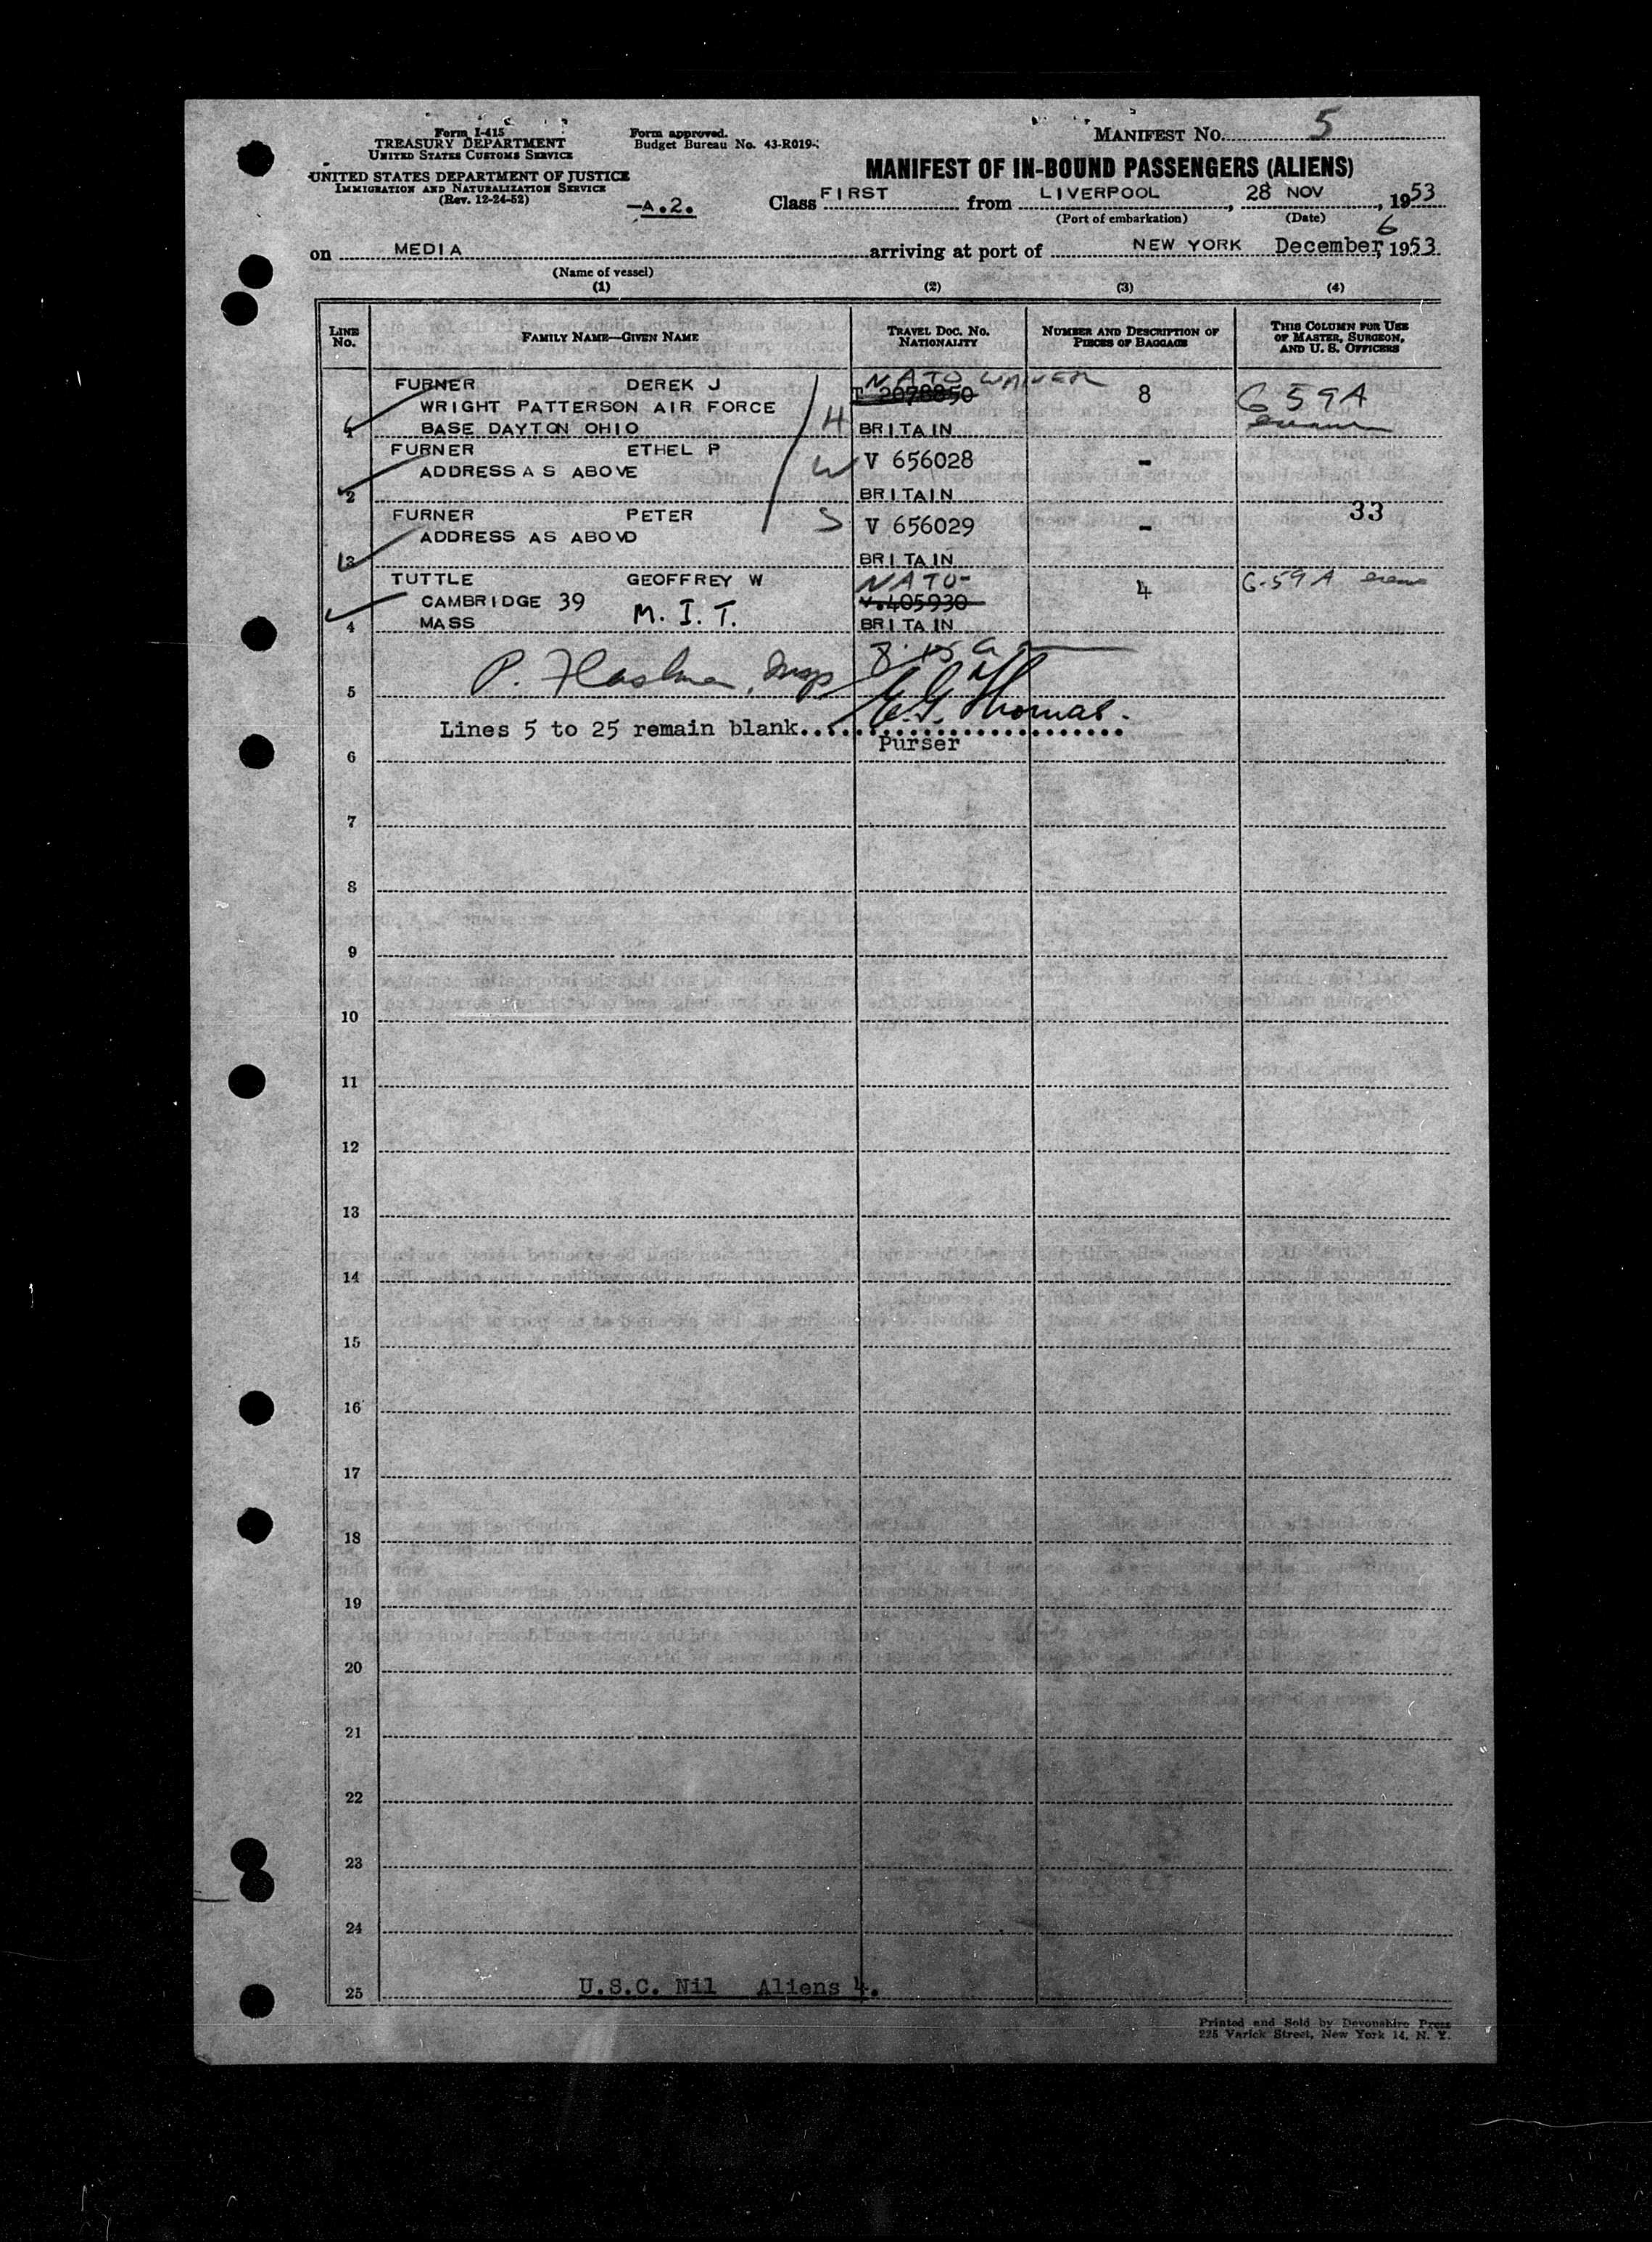 Form I-415
TREASURY DEPARTMENT
UNITED STATES CUSTOMS SERVICE
UNITED STATES DEPARTMENT OF JUSTICE
IMMIGRATION AND NATURALIZATION SERVICE
(Rev. 12-24-52)
Form approved.
Budget Bureau No. 43-R019-
—A.2.
MANIFEST NO. 5
MANIFEST OF IN-BOUND PASSENGERS (ALIENS)
Class FIRST from LIVERPOOL, 28 NOV, 1953
(Port of embarkation) (Date)
on MEDIA arriving at port of NEW YORK December 6, 1953
(Name of vessel)
(1) (2) (3) (4)
LINE NO. FAMILY NAME—GIVEN NAME TRAVEL DOC. NO. NATIONALITY NUMBER AND DESCRIPTION OF PIECES OF BAGGAGE THIS COLUMN FOR USE OF MASTER, SURGEON, AND U. S. OFFICERS
FURNER DEREK J NATO WAIVER 8 G 59A
WRIGHT PATTERSON AIR FORCE T 2078850
1 BASE DAYTON OHIO H BRITAIN
FURNER ETHEL P W V 656028 -
ADDRESS A S ABOVE
2 BRITAIN
FURNER PETER S V 656029 - 33
ADDRESS AS ABOVD
3 BRITAIN
TUTTLE GEOFFREY W NATO- 4 G-59A
CAMBRIDGE 39 M. I. T. V.405930
4 MASS BRITAIN
5
Lines 5 to 25 remain blank.... E.G. Thomas.
Purser
6
7
8
9
10
11
12
13
14
15
16
17
18
19
20
21
22
23
24
25 U.S.C. Nil Aliens 4.
Printed and Sold by Devonshire Press
225 Varick Street, New York 14, N. Y.